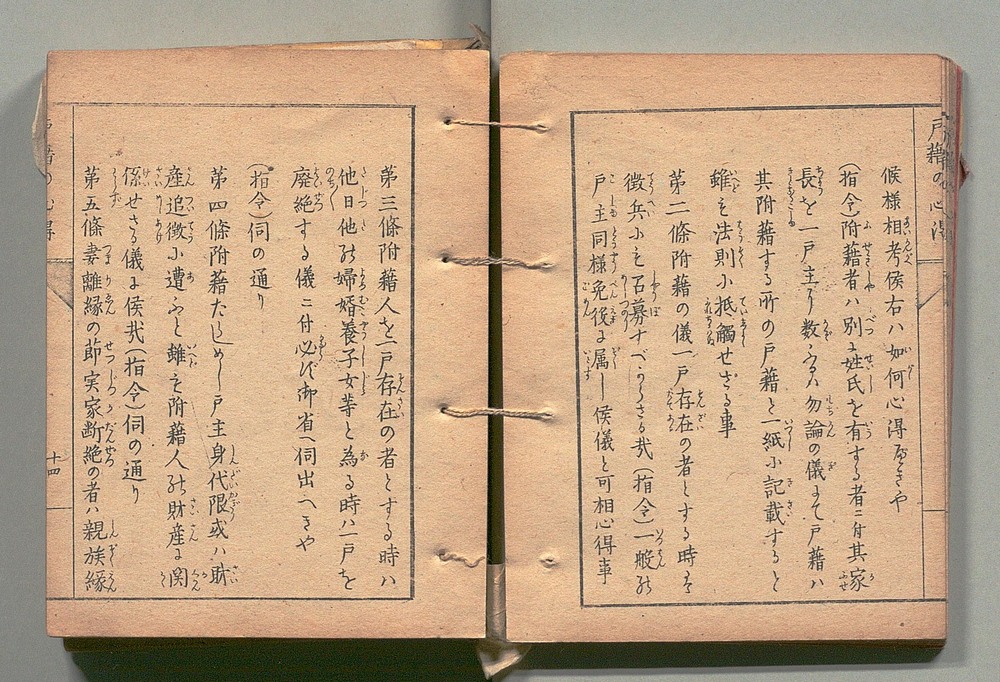 戸籍の心得
候様相考候右ハ如何心得可然や
(指令)附籍者ハ別に姓氏を有する者ニ付其家
長を一戸主と数ふるハ勿論の儀まて戸籍ハ
其附籍する所の戸籍と一紙に記載すると
雖も法則に抵觸せざる事
第二條附籍の儀一戸存在の者とする時は
徴兵にも石募すべからさる哉(指令)一般の
戸主同様免役に属し候儀と可相心得事
第三條附籍人を一戸存在の者とする時ハ
他日他の婦婚養子女等と為る時ハ一戸を
廃絶する儀ニ付必ず御省へ伺出へきや
(指令)伺の通り
第四條附籍たらしめし戸主身代限或ハ財
産追徴に遭ふと雖も附籍人の財産に関
係せさる儀に候哉(指令)伺の通り
第五條妻離縁の節実家断絶の者ハ親族縁
戸籍の心得
十四